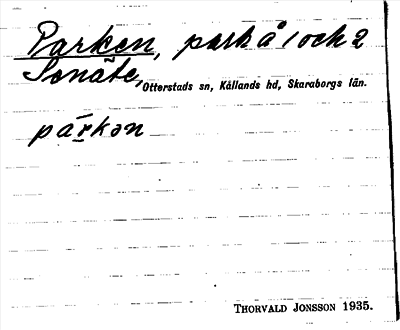 Parken, park å 1 och 2
Senäte, Otterstads sn, Kållands hd, Skaraborgs län.
párkən
THORVALD JONSSON 1935.